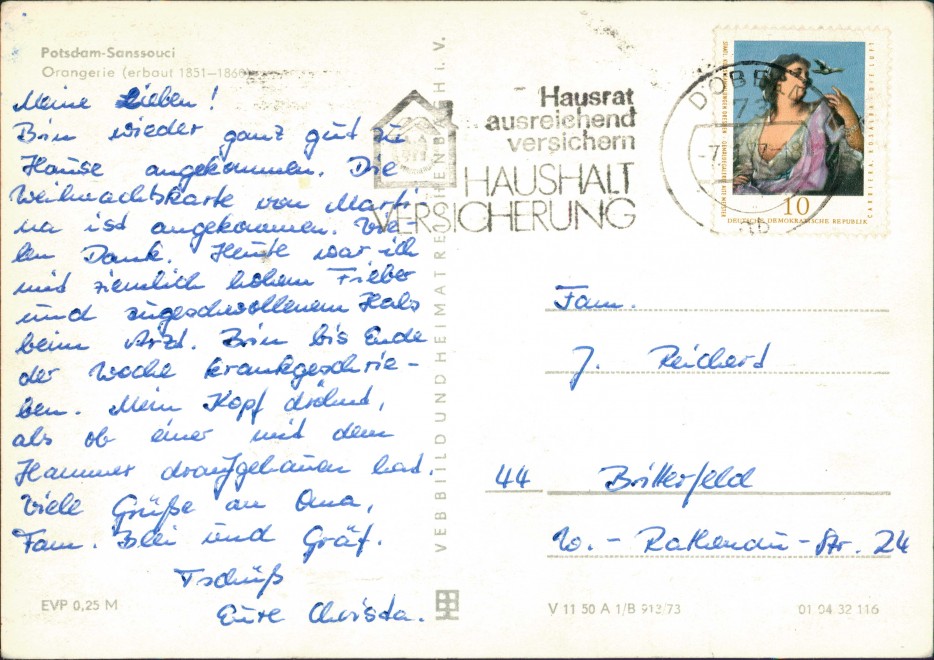 Potsdam-Sanssouci
Orangerie (erbaut 1851—1860)
Meine Lieben!
Bin wieder ganz gut zu
Hause angekommen. Die
Weihnachtskarte von Marti-
na ist angekommen. Vie-
len Dank. Heute war ich
mit ziemlich hohem Fieber
und angeschwollenem Hals
beim Arzt. Bin bis Ende
der Woche krankgeschrie-
ben. Mein Kopf dröhnt,
als ob einer mit dem
Hammer draufgehauen hat.
Viele Grüße an Oma,
Fam. Blei und Gräf.
Tschüß
Eure Christa.
EVP 0,25 M
VEB BILD UND HEIMAT REICHENBACH I. V.
Hausrat
ausreichend
versichern
HAUSHALT
VERSICHERUNG
DÖBELN
73
10
DEUTSCHE DEMOKRATISCHE REPUBLIK
Fam.
J. Reichard
44 Bitterfeld
W.-Rathenau-Str. 24
V 11 50 A 1/B 913/73
01 04 32 116